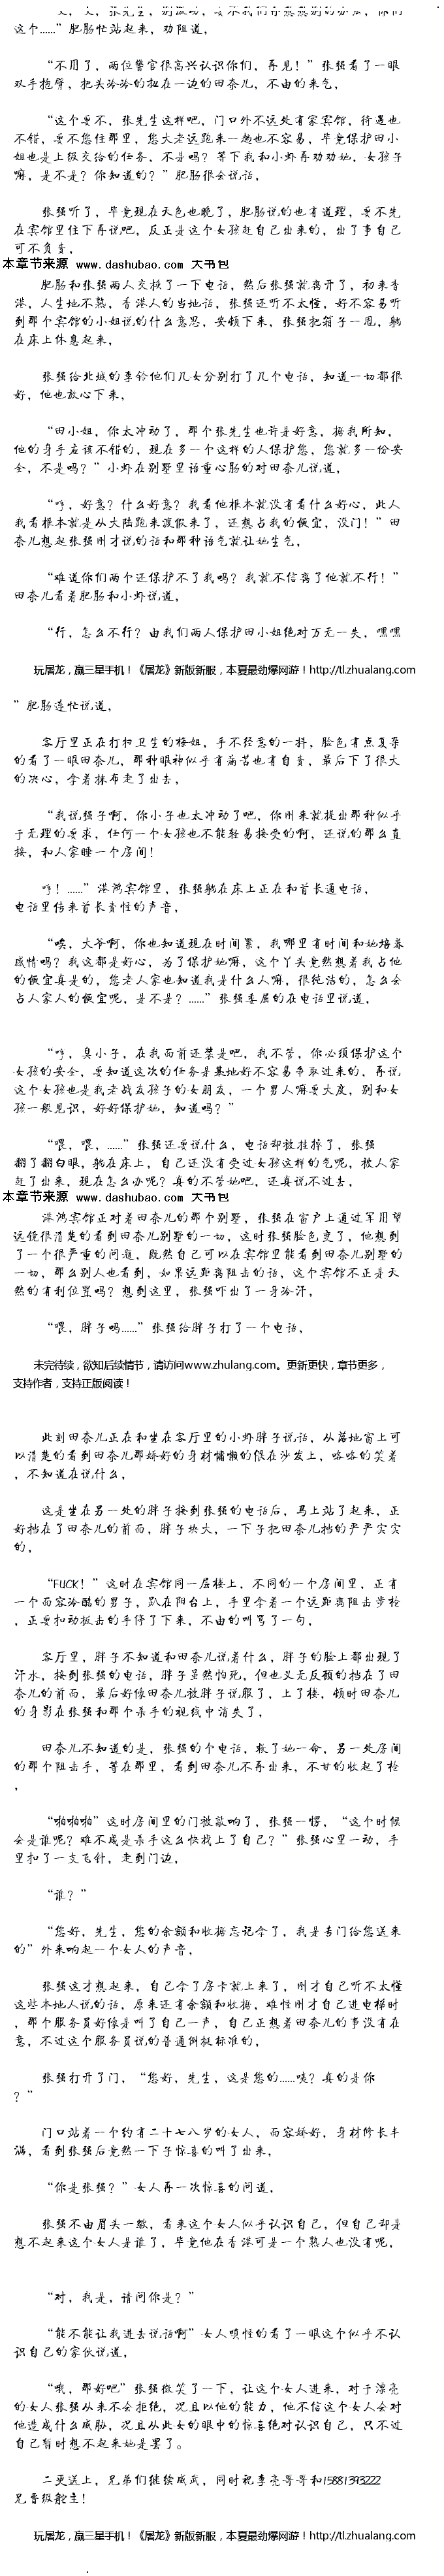 这个……”肥肠忙站起来，劝阻道，
“不用了，两位警官很高兴认识你们，再见！”张强看了一眼
双手抱臂，把头冷冷的扭在一边的田奈儿，不由的来气，
“这个要不，张先生这样吧，门口外不远处有家宾馆，待遇也
不错，要不您住那里，您大老远跑来一趟也不容易，毕竟保护田小
姐也是上级交给的任务，不是吗？等下我和小虾再劝劝她，女孩子
嘛，是不是？你知道的？”肥肠很会说话，
张强听了，毕竟现在天色也晚了，肥肠说的也有道理，要不先
在宾馆里住下再说吧，反正是这个女孩赶自己出来的，出了事自己
可不负责，
本章节来源 www.dashubao.com 大书包
肥肠和张强两人交换了一下电话，然后张强就离开了，初来香
港，人生地不熟，香港人的当地话，张强还听不太懂，好不容易听
到那个宾馆的小姐说的什么意思，安顿下来，张强把箱子一甩，躺
在床上休息起来，
张强给北城的李铃他们几女分别打了几个电话，知道一切都很
好，他也放心下来，
“田小姐，你太冲动了，那个张先生也许是好意，据我所知，
他的身手应该不错的，现在多一个这样的人保护您，您就多一份安
全，不是吗？”小虾在别墅里语重心肠的对田奈儿说道，
“哼，好意？什么好意？我看他根本就没有看什么好心，此人
我看根本就是从大陆跑来渡假来了，还想占我的便宜，没门！”田
奈儿想起张强刚才说的话和那种语气就让她生气，
“难道你们两个还保护不了我吗？我就不信离了他就不行！”
田奈儿看着肥肠和小虾说道，
“行，怎么不行？由我们两人保护田小姐绝对万无一失，嘿嘿
玩屠龙，赢三星手机！《屠龙》新版新服，本夏最劲爆网游！http://tl.zhualang.com
”肥肠连忙说道，
客厅里正在打扫卫生的梅姐，手不经意的一抖，脸色有点复杂
的看了一眼田奈儿，那种眼神似乎有痛苦也有自责，最后下了很大
的决心，拿着抹布走了出去，
“我说强子啊，你小子也太冲动了吧，你刚来就提出那种似乎
于无理的要求，任何一个女孩也不能轻易接受的啊，还说的那么直
接，和人家睡一个房间！
哼！……”港湾宾馆里，张强躺在床上正在和首长通电话，
电话里传来首长责怪的声音，
“唉，大爷啊，你也知道现在时间紧，我哪里有时间和她培养
感情吗？我这都是好心，为了保护她嘛，这个丫头竟然想着我占他
的便宜真是的，您老人家也知道我是什么人嘛，很纯洁的，怎么会
占人家人的便宜呢，是不是？……”张强委屈的在电话里说道，
“哼，臭小子，在我面前还装是吧，我不管，你必须保护这个
女孩的安全，要知道这次的任务是基地好不容易争取过来的，再说
这个女孩也是我老战友孩子的女朋友，一个男人嘛要大度，别和女
孩一般见识，好好保护她，知道吗？”
“喂，喂，……”张强还要说什么，电话却被挂掉了，张强
翻了翻白眼，躺在床上，自己还没有受过女孩这样的气呢，被人家
赶了出来，现在怎么办呢？真的不管她吧，还真说不过去，
本章节来源 www.dashubao.com 大书包
港湾宾馆正对着田奈儿的那个别墅，张强在窗户上通过军用望
远镜很清楚的看到田奈儿别墅的一切，这时张强脸色变了，他想到
了一个很严重的问题，既然自己可以在宾馆里能看到田奈儿别墅的
一切，那么别人也看到，如果远距离阻击的话，这个宾馆不正是天
然的有利位置吗？想到这里，张强吓出了一身冷汗，
“喂，胖子吗……”张强给胖子打了一个电话，
未完待续，欲知后续情节，请访问www.zhulang.com。更新更快，章节更多，
支持作者，支持正版阅读！
此刻田奈儿正在和坐在客厅里的小虾胖子说话，从落地窗上可
以清楚的看到田奈儿那娇好的身材慵懒的偎在沙发上，咯咯的笑着
，不知道在说什么，
这是坐在另一处的胖子接到张强的电话后，马上站了起来，正
好挡在了田奈儿的前面，胖子块大，一下子把田奈儿挡的严严实实
的，
“FUCK！”这时在宾馆同一层楼上，不同的一个房间里，正有
一个面容冷酷的男子，趴在阳台上，手里拿着一个远距离阻击步枪
，正要扣动扳击的手停了下来，不由的叫骂了一句，
客厅里，胖子不知道和田奈儿说着什么，胖子的脸上都出现了
汗水，接到张强的电话，胖子虽然怕死，但也义无反顾的挡在了田
奈儿的前面，最后好像田奈儿被胖子说服了，上了楼，顿时田奈儿
的身影在张强和那个杀手的视线中消失了，
田奈儿不知道的是，张强的个电话，救了她一命，另一处房间
的那个阻击手，等在那里，看到田奈儿不再出来，不甘的收起了枪
，
“啪啪啪”这时房间里的门被敲响了，张强一愣，“这个时候
会是谁呢？难不成是杀手这么快找上了自己？”张强心里一动，手
里扣了一支飞针，走到门边，
“谁？”
“您好，先生，您的余额和收据忘记拿了，我是专门给您送来
的”外来响起一个女人的声音，
张强这才想起来，自己拿了房卡就上来了，刚才自己听不太懂
这些本地人说的话，原来还有余额和收据，难怪刚才自己进电梯时
，那个服务员好像是叫了自己一声，自己正想着田奈儿的事没有在
意，不过这个服务员说的普通倒挺标准的，
张强打开了门，“您好，先生，这是您的……咦？真的是你
？”
门口站着一个约有二十七八岁的女人，面容娇好，身材修长丰
满，看到张强后竟然一下子惊喜的叫了出来，
“你是张强？”女人再一次惊喜的问道，
张强不由眉头一皱，看来这个女人似乎认识自己，但自己却是
想不起来这个女人是谁了，毕竟他在香港可是一个熟人也没有呢，
“对，我是，请问你是？”
“能不能让我进去说话啊”女人嗔怪的看了一眼这个似乎不认
识自己的家伙说道，
“哦，那好吧”张强微笑了一下，让这个女人进来，对于漂亮
的女人张强从来不会拒绝，况且以他的能力，他不信这个女人会对
他造成什么威胁，况且从此女的眼中的惊喜绝对认识自己，只不过
自己暂时想不起来她是罢了。
二更送上，兄弟们继续威武，同时祝李亮哥哥和15881393222
兄晋级舵主！
玩屠龙，赢三星手机！《屠龙》新版新服，本夏最劲爆网游！http://tl.zhualang.com